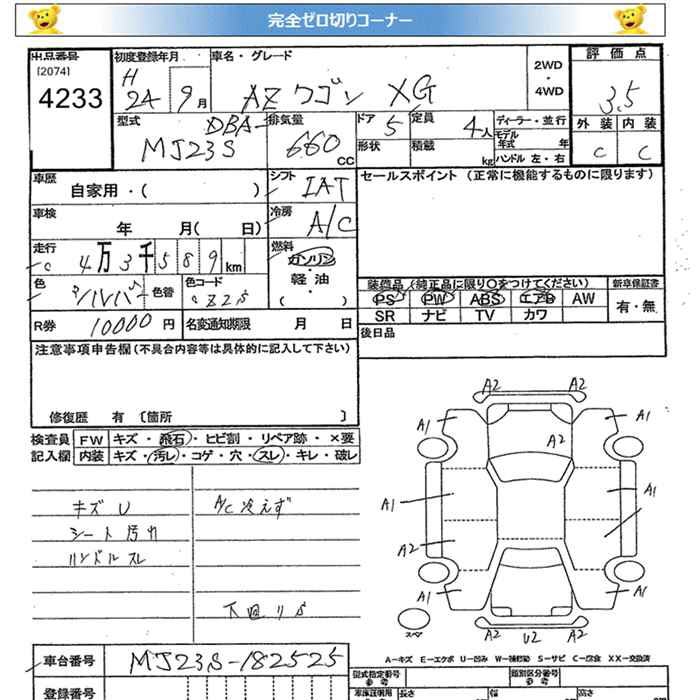 完全ゼロ切りコーナー
出品番号 初度登録年月 車名・グレード 2WD・4WD 評価点
[2074] H
4233 24 9月 AZワゴン XG 3.5
型式 DBA- 排気量 ドア 定員 ディーラー・並行 外装 内装
MJ23S 660 CC 5 4人 モデル年式 年 C C
形状 積載 kg ハンドル 左・右
車歴 自家用・( ) シフト IAT セールスポイント (正常に機能するものに限ります)
車検 年 月( 日) 冷房 A/C
走行 4万3千589km 燃料 ガソリン・軽油・( )
色 シルバー 色替 色コード Z2S 装備品(純正品に限り○をつけてください) 新車保証書
PS PW ABS エアB AW 有・無
R券 10000円 名変通知期限 月 日 SR ナビ TV カワ
注意事項申告欄(不具合内容等は具体的に記入して下さい) 後日品
修復歴 有 〔箇所 〕
検査員記入欄 FW キズ・飛石・ヒビ割・リペア跡・×要
内装 キズ・汚レ・コゲ・穴・スレ・キレ・破レ
キズ U A/C冷えず
シート汚れ
ハンドルスレ
下廻りサ
A2 A2
A1 A2 A1
A1 A1
A2
A1 A1
スペア A2 U2 A2
A-キズ E-エクボ U-凹み W-補修跡 S-サビ C-腐食 XX-交換済
車台番号 MJ23S-182525 型式指定番号 参考 類別区分番号 参考
登録番号 車庫証明用 参考 長さ 幅 高さ